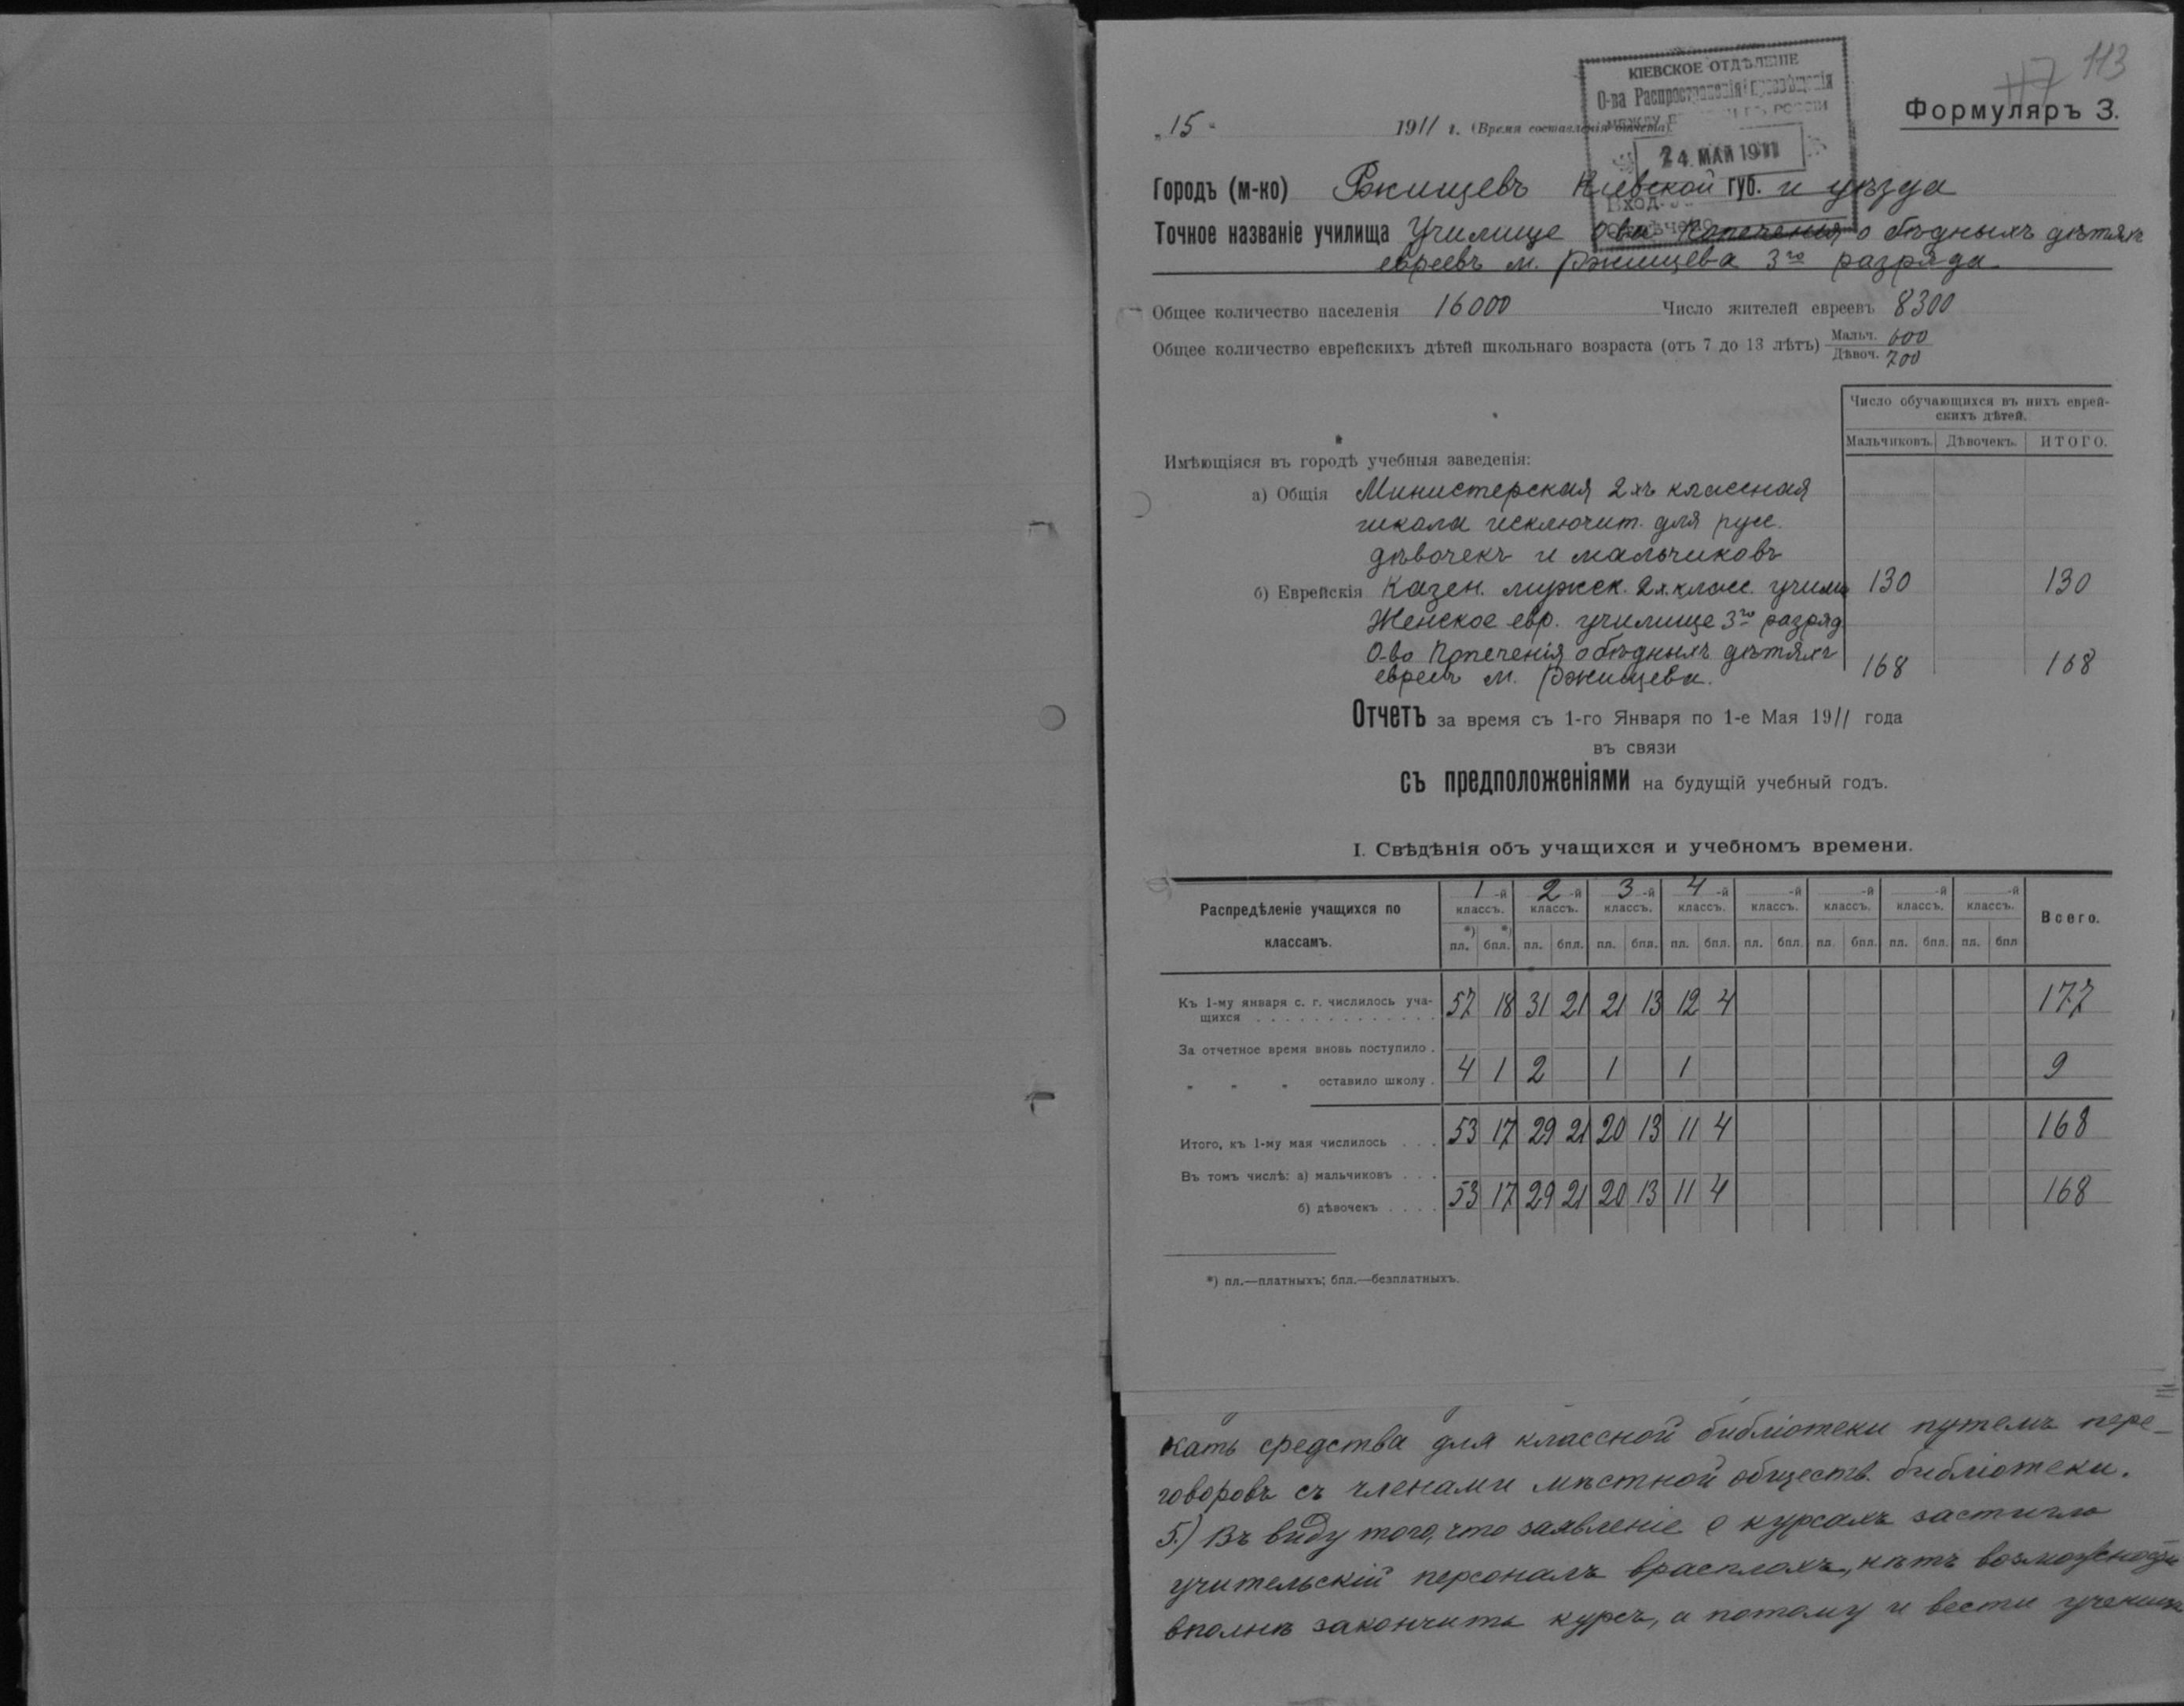 117 113
КІЕВСКОЕ ОТДѢЛЕНІЕ
О-ва Распространенія просвѣщенія
МЕЖДУ ЕВРЕЯМИ ВЪ РОССІИ
24 МАЙ 1911
Вход.
Формуляръ 3.
„15" 1911 г. (Время составленія отчета).
Городъ (м-ко) Ржищевъ Кіевской губ. и уѣзда
Точное названіе училища Училище О-ва Попеченія о бѣдныхъ дѣтяхъ
евреевъ м. Ржищева 3го разряда
Общее количество населенія 16000 Число жителей евреевъ 8300
Общее количество еврейскихъ дѣтей школьнаго возраста (отъ 7 до 13 лѣтъ) Мальч. 600
Дѣвоч. 700
Число обучающихся въ нихъ еврей-
скихъ дѣтей.
Мальчиковъ. Дѣвочекъ. ИТОГО.
Имѣющіяся въ городѣ учебныя заведенія:
а) Общія Министерская 2хъ классная
школа исключит. для русс.
дѣвочекъ и мальчиковъ
б) Еврейскія Казен. мужск. 2х.класс. учили 130 130
Женское евр. училище 3го разряд
О-ва Попеченія о бѣдныхъ дѣтяхъ
евреевъ м. Ржищева. 168 168
Отчетъ за время съ 1-го Января по 1-е Мая 1911 года
въ связи
съ предположеніями на будущій учебный годъ.
I. Свѣдѣнія объ учащихся и учебномъ времени.
Распредѣленіе учащихся по 1-й 2-й 3-й 4-й -й -й -й -й
классамъ. классъ. классъ. классъ. классъ. классъ. классъ. классъ. классъ. Всего.
пл.*) бпл.*) пл. бпл. пл. бпл. пл. бпл. пл. бпл. пл. бпл. пл. бпл. пл. бпл
Къ 1-му января с. г. числилось уча-
щихся . . . 57 18 31 21 21 13 12 4 177
За отчетное время вновь поступило .
„ „ „ оставило школу . 4 1 2 1 1 9
Итого, къ 1-му мая числилось . . . 53 17 29 21 20 13 11 4 168
Въ томъ числѣ: а) мальчиковъ . . .
б) дѣвочекъ . . . . 53 17 29 21 20 13 11 4 168
*) пл.—платныхъ; бпл.—безплатныхъ.
кать средства для классной библіотеки путемъ пере-
говоровъ съ членами мѣстной обществ. библіотеки.
5.) Въ виду того, что заявленіе о курсахъ застигло
учительскій персоналъ врасплохъ, нѣтъ возможности
вполнѣ закончить курсъ, а потому и вести учениц